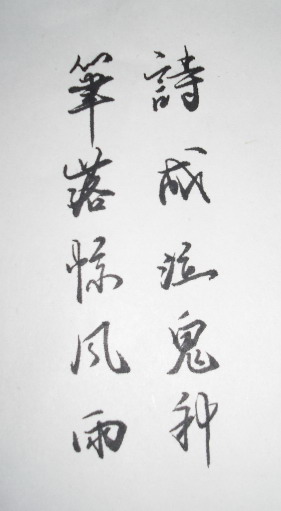 筆落惊风雨
詩成泣鬼神